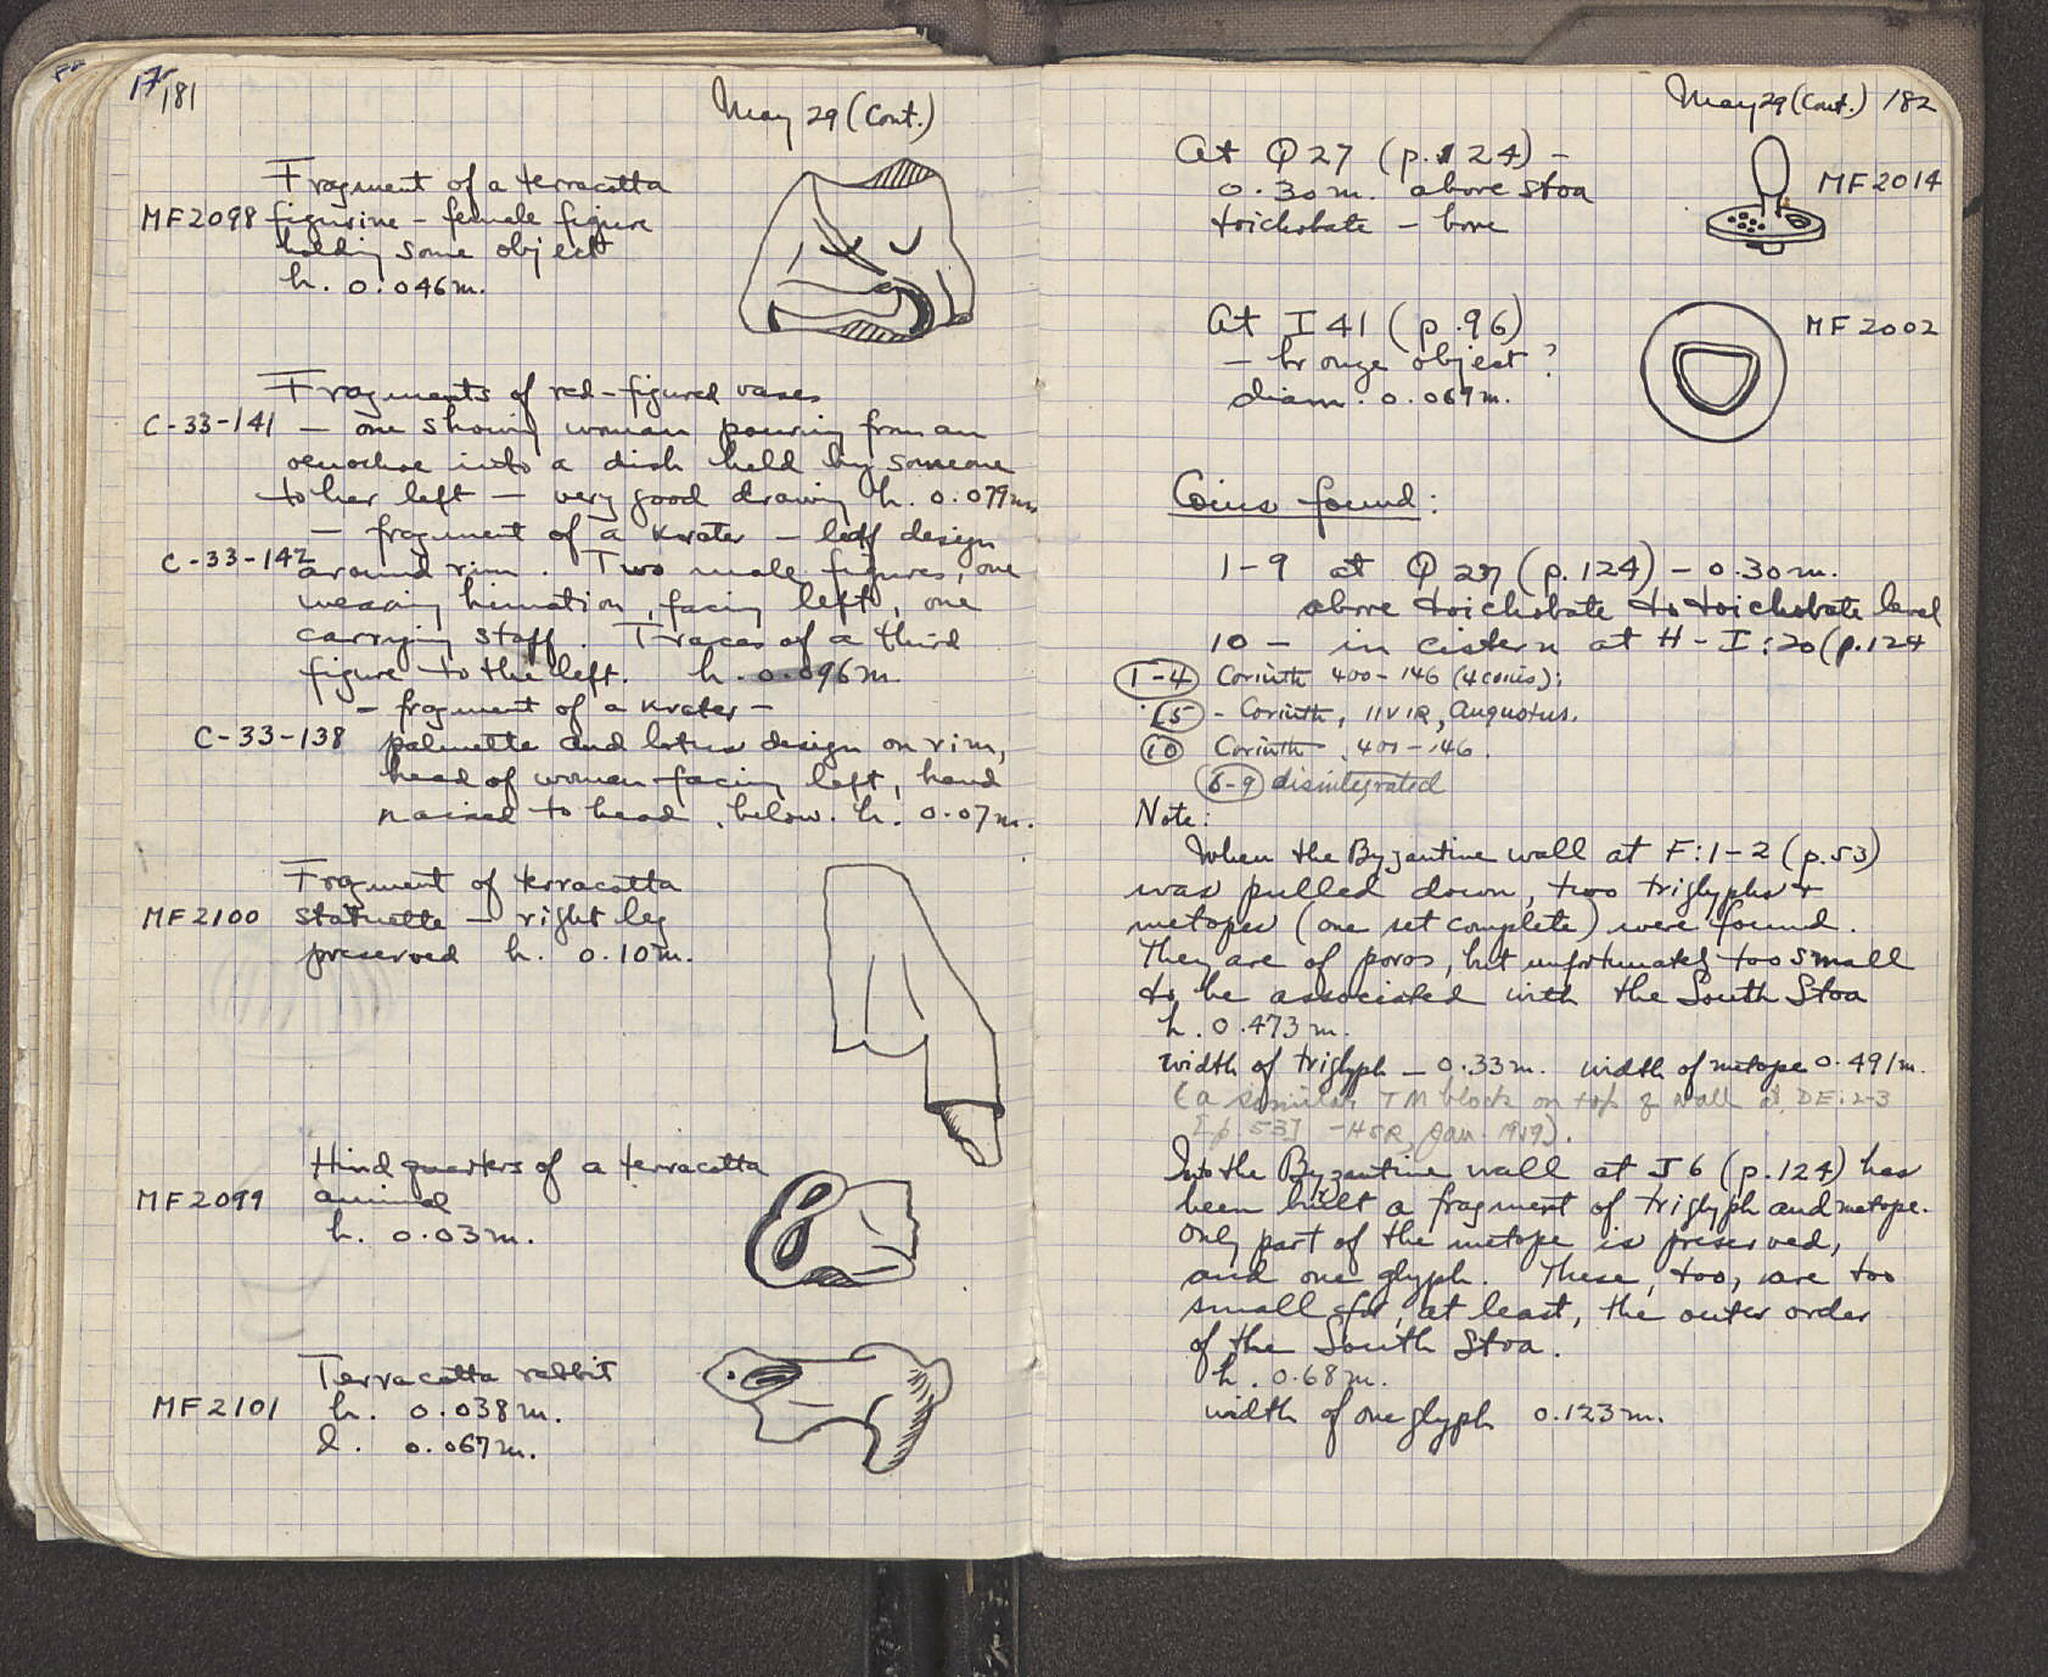 181
May 29 (Cont.)
Fragment of a terracotta
MF2098 figurine – female figure
holding some object
h. 0.046 m.
Fragments of red-figured vases
C-33-141 – one showing woman pouring from an
oenochoe into a dish held by someone
to her left – very good drawing h. 0.079 m.
– fragment of a krater – leaf design
C-33-142 around rim. Two male figures, one
wearing himation, facing left, one
carrying staff. Traces of a third
figure to the left. h. 0.096 m
– fragment of a krater –
C-33-138 palmette and lotus design on rim,
head of woman facing left, hand
raised to head, below. h. 0.07 m.
Fragment of terracotta
MF2100 statuette – right leg
preserved h. 0.10 m.
Hind quarters of a terracotta
MF2099 animal
h. 0.03 m.
Terracotta rabbit
MF2101 h. 0.038 m.
l. 0.067 m.
May 29 (Cont.) 182
At Q27 (p. 124) –
0.30 m. above stoa MF2014
toichobate – bone
At I 41 (p. 96) MF2002
– bronze object?
diam. 0.069 m.
Coins found:
1-9 at Q 27 (p. 124) – 0.30 m.
above toichobate to toichobate level
10 – in cistern at H-I:20 (p. 124
1-4 Corinth 400-146 (4 coins);
5 - Corinth, IIVIR, Augustus.
10 Corinth, 400-146.
6-9 disintegrated
Note:
When the Byzantine wall at F:1-2 (p. 53)
was pulled down, two triglyphs +
metopes (one set complete) were found.
They are of poros, but unfortunately too small
to be associated with the South Stoa
h. 0.473 m.
width of triglyph – 0.33 m. width of metope 0.491 m.
(a similar TM block on top of wall at DE:2-3
[p. 53] – HSR, Jan.
Into the Byzantine wall at J6 (p. 124) has
been built a fragment of triglyph and metope.
Only part of the metope is preserved,
and one glyph. These, too, are too
small for, at least, the outer order
of the South Stoa.
h. 0.68 m.
width of one glyph 0.123 m.